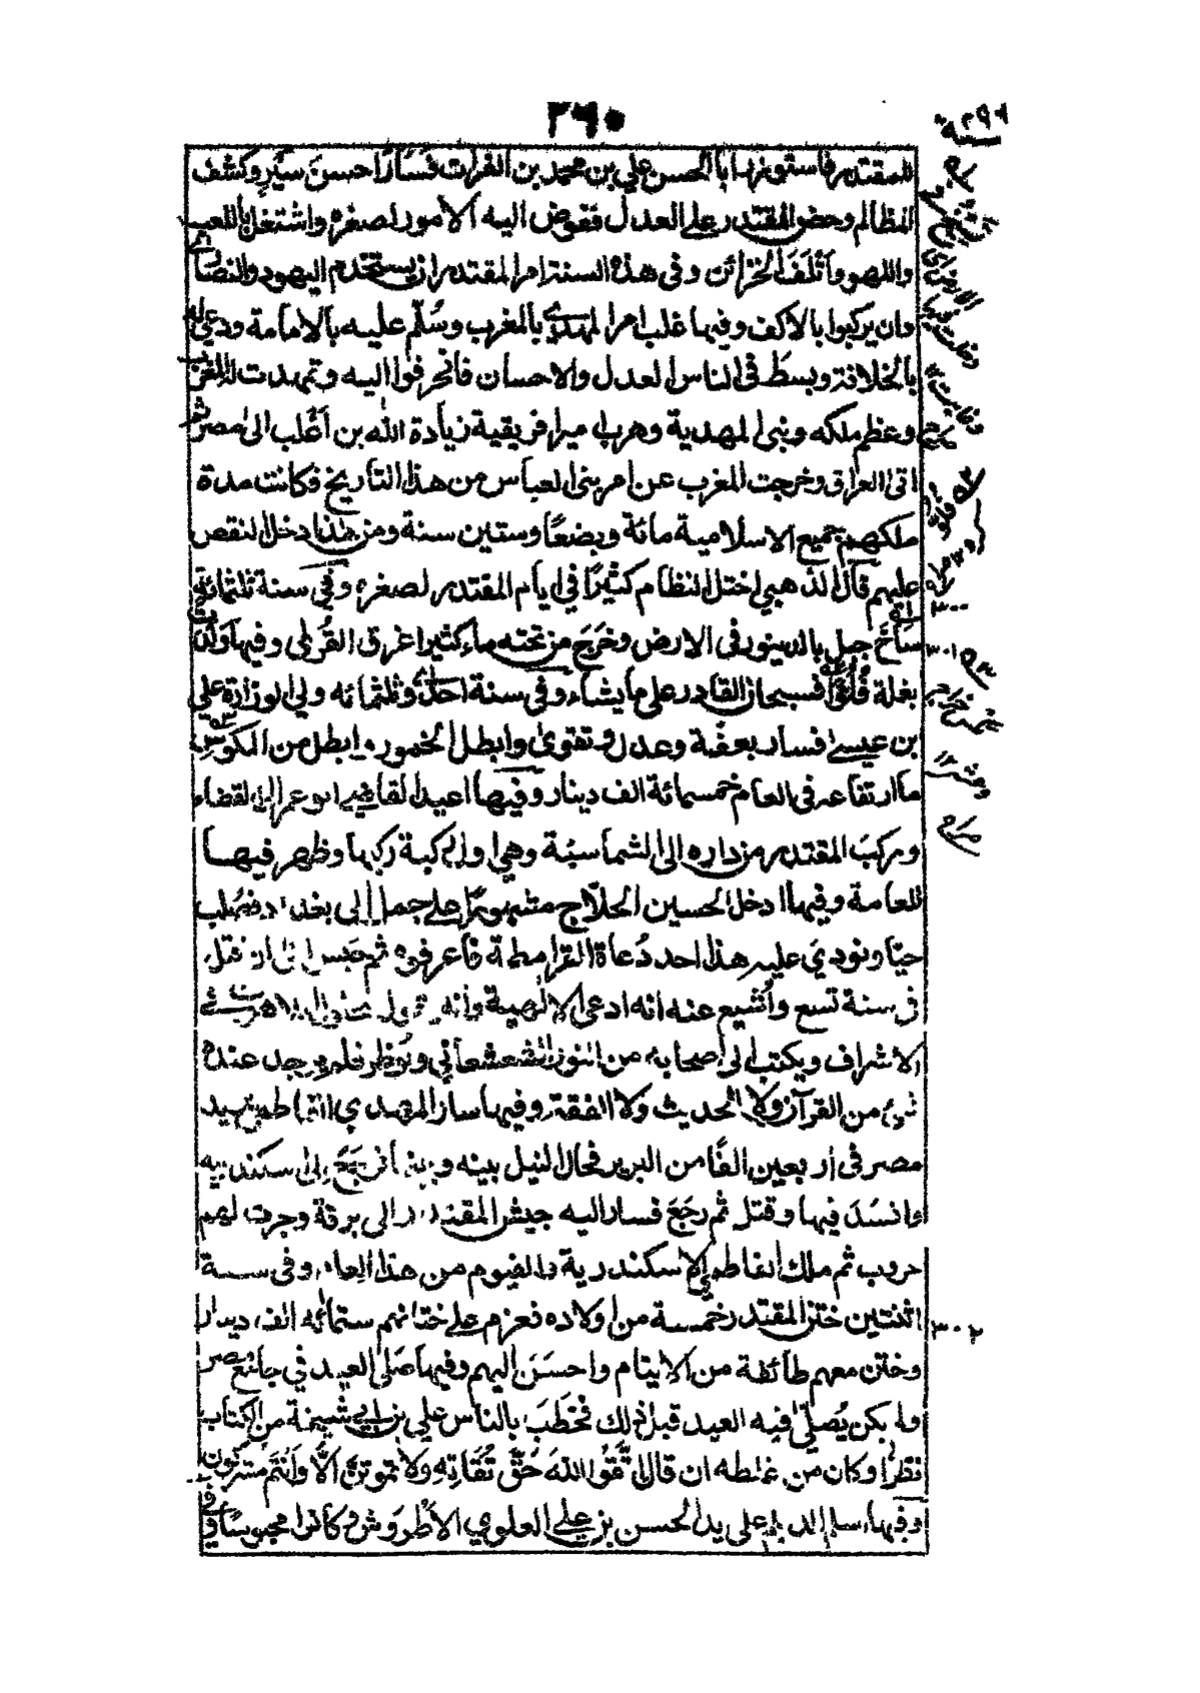 ٢٦٠
سنة ٢٩٦
للمقتدر فاستوزر ابا الحسن علي بن محمد بن الفرات فسار احسن سير وكشف
المظالم وحض المقتدر على العدل ففوض اليه الامور لصغره واشتغل باللعب
واللهو واتلف الخزائن وفي هذه السنة امر المقتدر ان لا يستخدم اليهود والنصارى
وان يركبوا بالاكف وفيها غلب امر المهدي بالمغرب وسُلّم عليه بالامامة ودعي له
بالخلافة وبسط في الناس العدل والاحسان فانحرفوا اليه وتمهدت له المغرب
وعظم ملكه وبنى المهدية وهرب امير افريقية زيادة الله بن اغلب الى مصر ثم
اتى العراق وخرجت المغرب عن امر بني العباس من هذا التاريخ فكانت مدة
ملكهم جميع الاسلامية مائة وبضعًا وستين سنة ومن هنا دخل النقص
عليهم قال الذهبي اختل النظام كثيرًا في ايام المقتدر لصغره وفي سنة ثلثمائة
٣٠٠
ساخ جبل بالدينور في الارض وخرج من تحته ماء كثير اغرق القرى وفيها ولدت
٣٠١
بغلة فلوًا فسبحان القادر على ما يشاء وفي سنة احدى وثلثمائه ولي الوزارة علي
بن عيسى فسار بعفة وعدل وتقوى وابطل الخمور وابطل من المكوس
ما ارتفاعه في العام خمسمائة الف دينار وفيها اعيد القاضي ابو عمر الى القضاء
وركب المقتدر من داره الى الشماسية وهي اول ركبة ركبها وظهر فيها
للعامة وفيها ادخل الحسين الحلاج مشهورًا على جمل الى بغداد فصلب
حيًا ونودي عليه هذا احد دُعاة القرامطة فاعرفوه ثم حبس الى ان قتل
في سنة تسع واُشيع عنه انه ادعى الالهية وانه يقول بحلول اللاهوت في
الاشراف ويكتب الى اصحابه من النور الشعشعاني ونُوظر فلم يوجد عنده
شيء من القرآن ولا الحديث ولا الفقه وفيها سار المهدي الفاطمي يريد
مصر في اربعين الفًا من البربر فحال النيل بينه وبينها فرجع الى سكندرية
وافسد فيها وقتل ثم رجع فسار اليه جيش المقتدر الى برقة وجرت لهم
حروب ثم ملك الفاطمي الاسكندرية والفيوم من هذا العام وفي سنة
اثنتين ختن المقتدر خمسة من اولاده فعزم على ختانهم ستمائه الف دينار
٣٠٢
وختن معهم طائفة من الايتام واحسن اليهم وفيها صَلى العيد في جامع مصر
ولم يكن يُصلى فيه العيد قبل ذلك فخطب بالناس علي بن ابي شيخة من الكتاب
نظرًا وكان من غلطه ان قال اتقوا الله حق تقاته ولا تموتن الا وانتم مشركون
وفيها اسلم الديلم على يد الحسن بن علي العلوي الاطروش وكانوا مجوسًا وفي